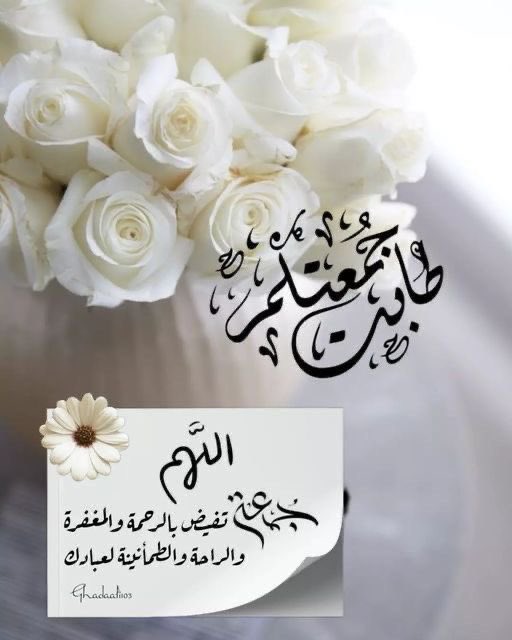 طابت جمعتكم
اللهم
جمعة تفيض بالرحمة والمغفرة
والراحة والطمأنينة لعبادك
Ghadaati103